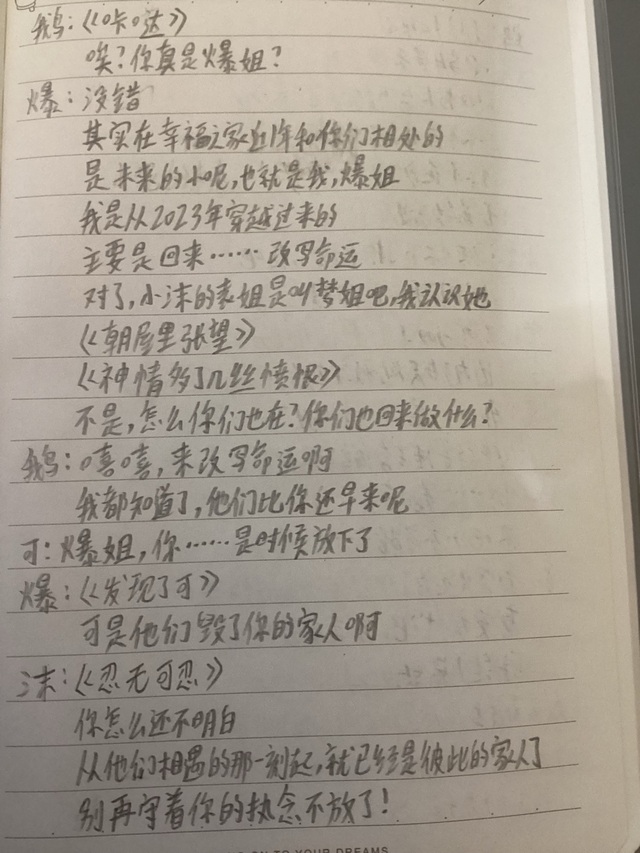 鹅:《咔哒》
唉?你真是爆姐?
爆:没错
其实在幸福之家近1年和你们相处的
是未来的小呢,也就是我,爆姐
我是从2023年穿越过来的
主要是回来……改写命运
对了,小沫的表姐是叫梦姐吧,我认识她
《朝屋里张望》
《神情多了几丝愤恨》
不是,怎么你们也在?你们也回来做什么?
鹅:嘻嘻,来改写命运啊
我都知道了,他们比你还早来呢
可:爆姐,你……是时候放下了
爆:《发现了可》
可是他们毁了你的家人啊
沫:《忍无可忍》
你怎么还不明白
从他们相遇的那一刻起,就已经是彼此的家人了
别再守着你的执念不放了!
ON TO YOUR DREAMS